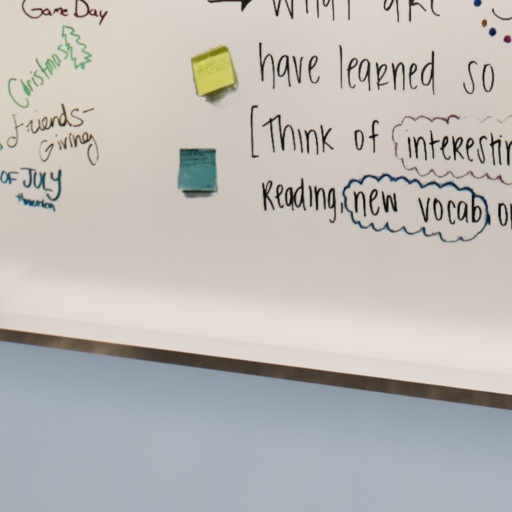 Game Day
Christmas
Friends-
Giving
OF JULY
What are
have learned so
[Think of
Reading, new vocab,